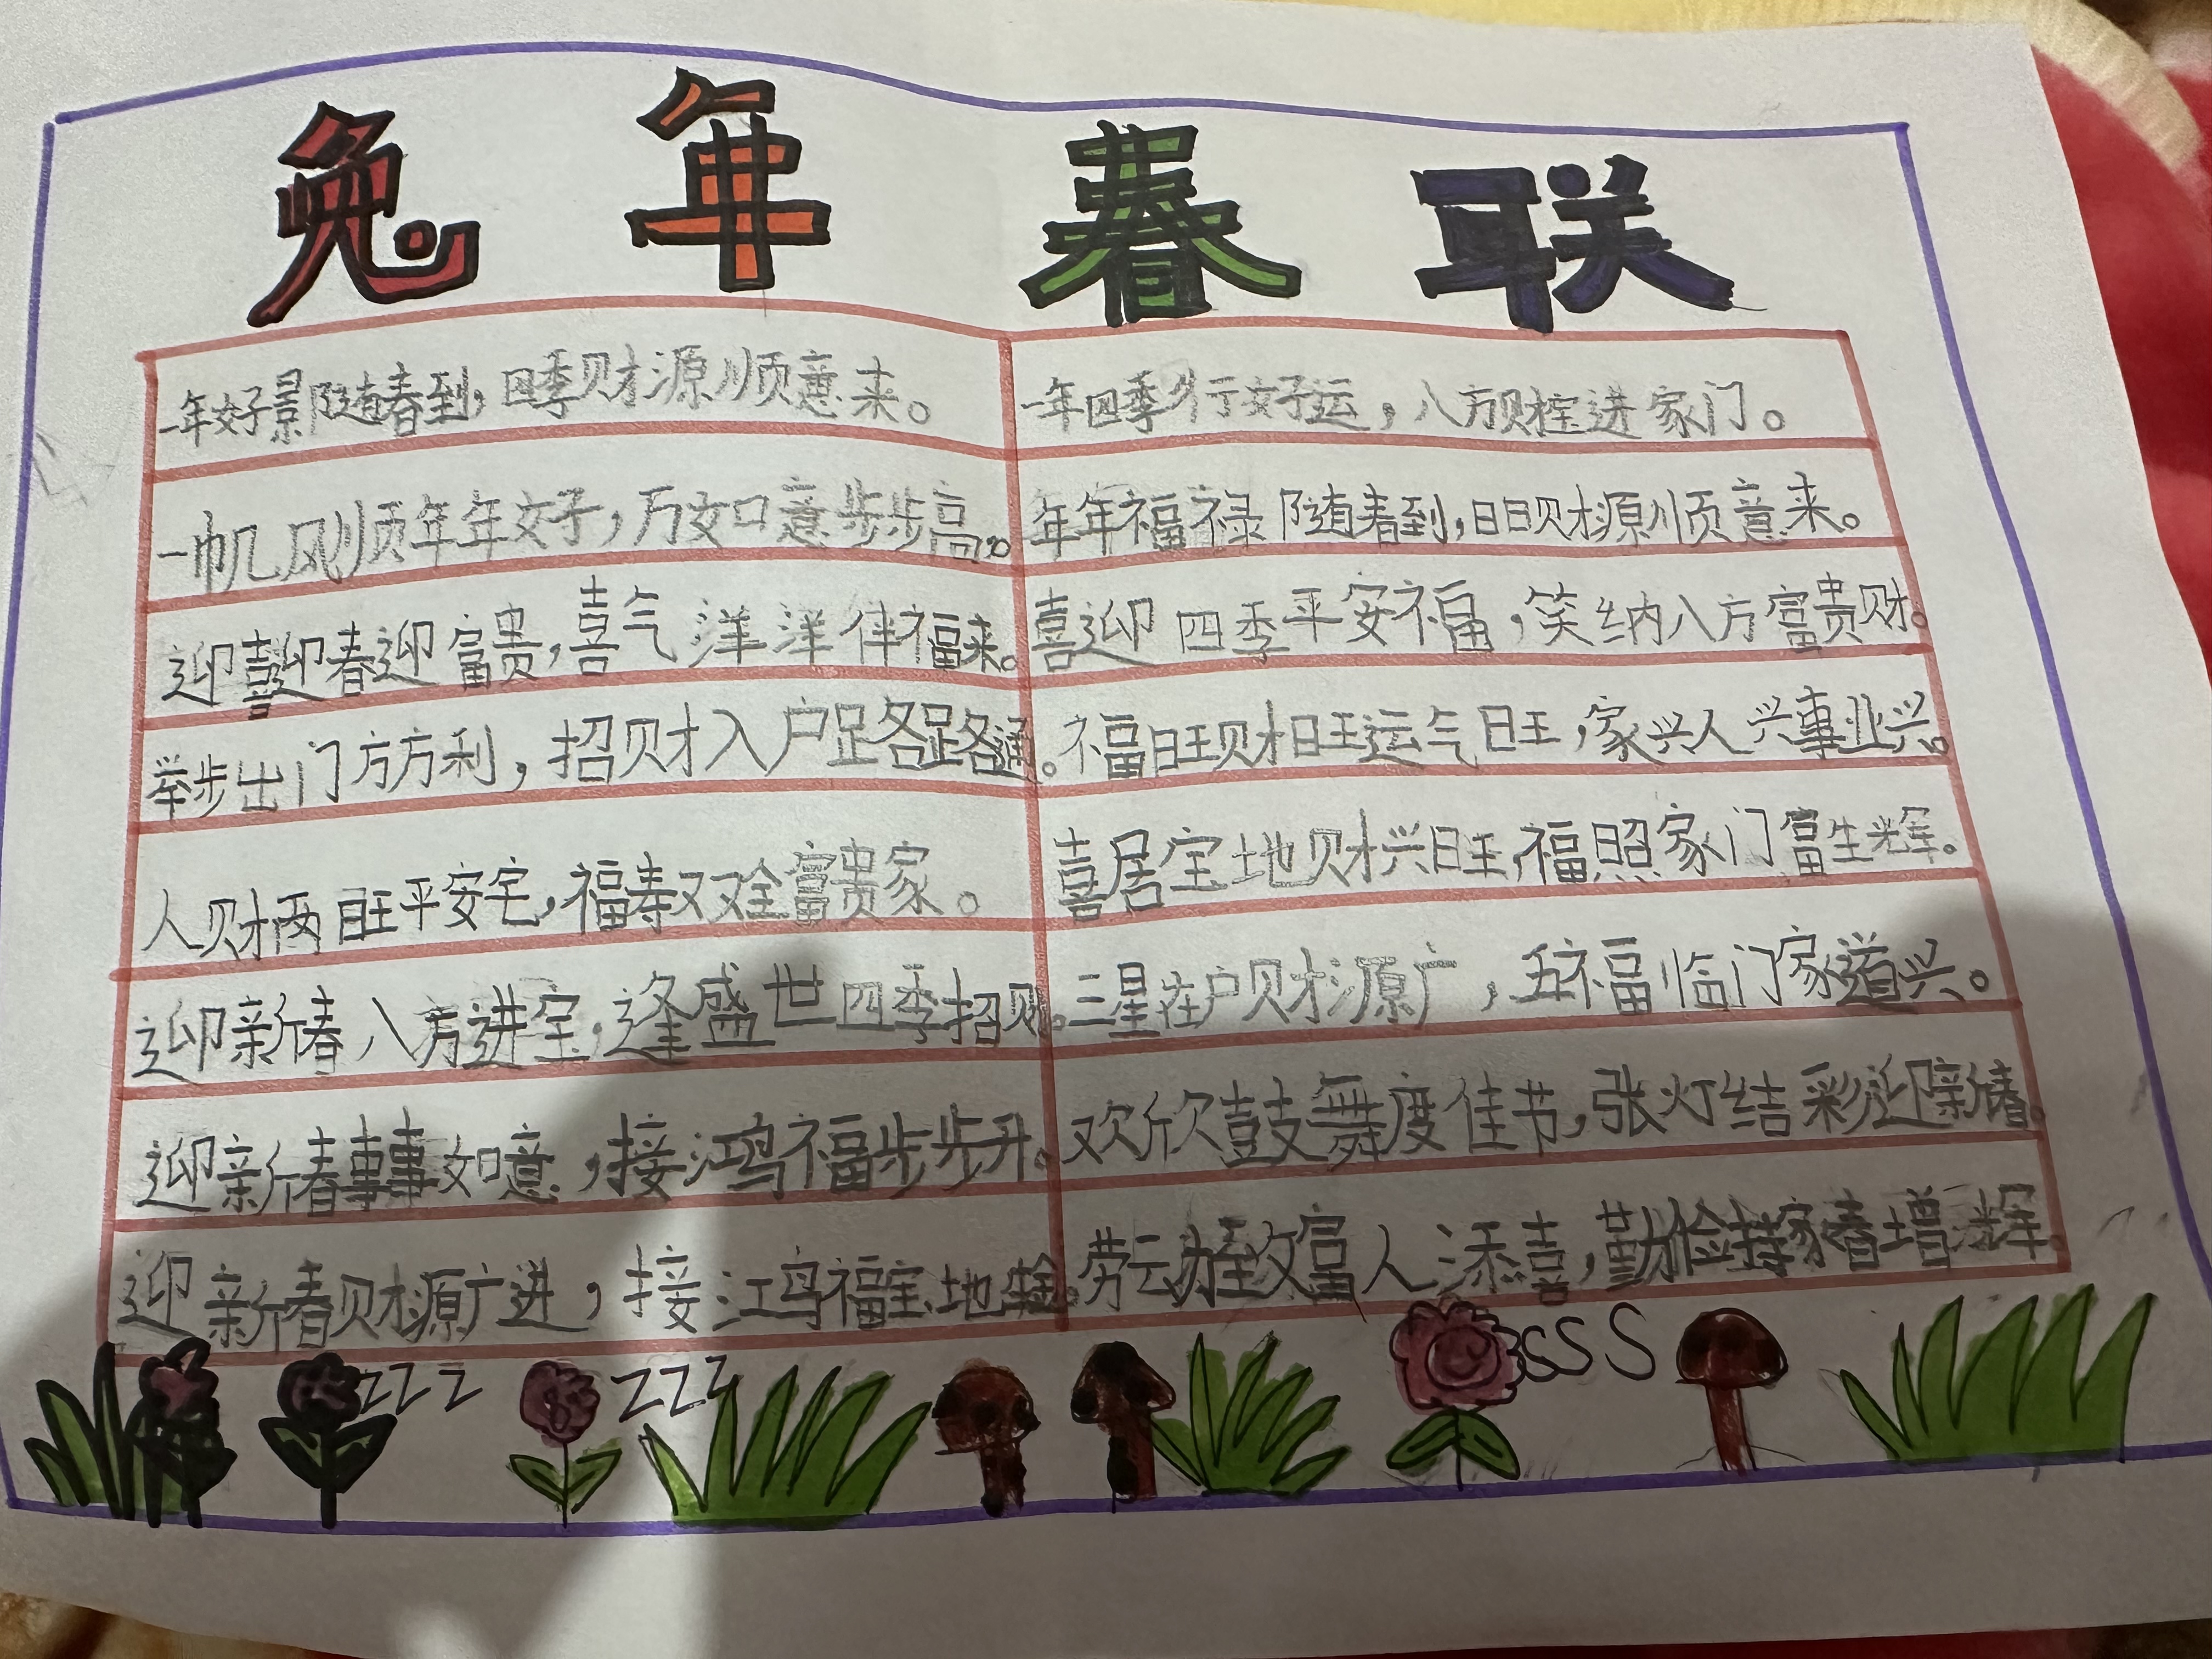 兔年春联
一年好景随春到，四季财源顺意来。
一帆风顺年年好，万如意步步高。
迎喜迎春迎富贵，喜气洋洋伴福来。
举步出门方方利，招财入户路路通。
人财两旺平安宅，福寿双全富贵家。
迎新春八方进宝，逢盛世四季招财。
迎新春事事如意，接鸿福步步升。
迎新春财源广进，接鸿福宝地生金。
一年四季行好运，八方财宝进家门。
年年福禄随春到，日日财源顺意来。
喜迎四季平安福，笑纳八方富贵财。
福旺财旺运气旺，家兴人兴事业兴。
喜居宝地财兴旺，福照家门富生辉。
三星在户财源广，五福临门家道兴。
欢欣鼓舞度佳节，张灯结彩迎新春。
劳动致富人添喜，勤俭持家春增辉。
zzz
zzz
sSS